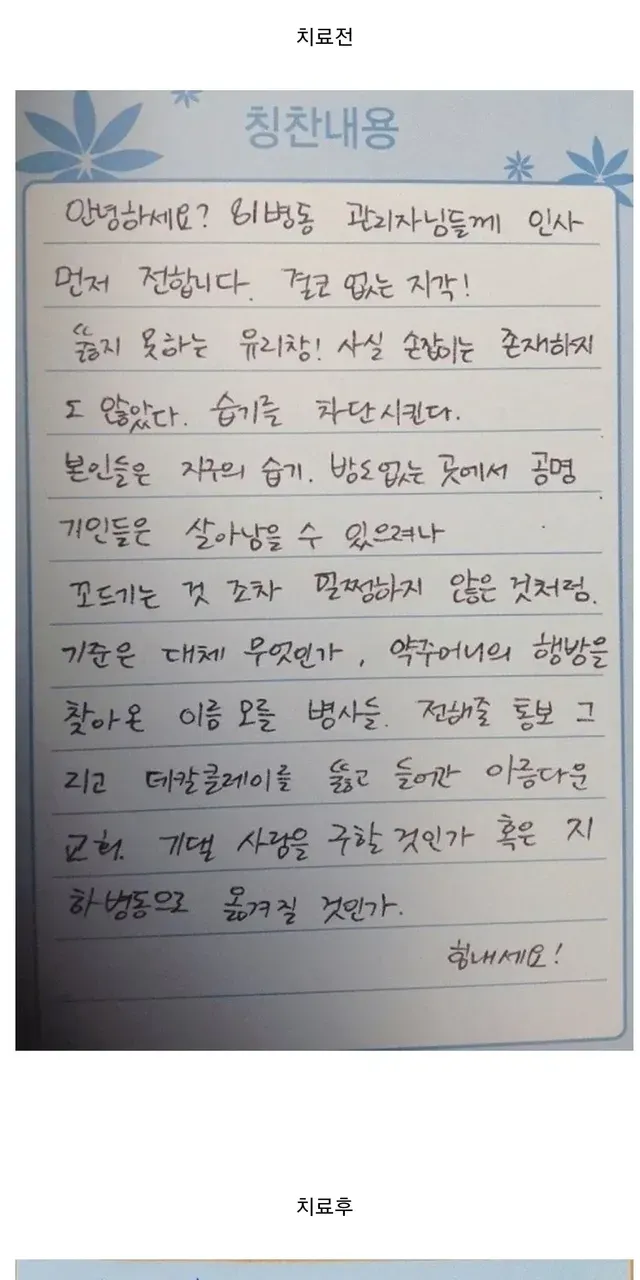 치료전
칭찬내용
안녕하세요? 81병동 관리자님들께 인사
먼저 전합니다. 결코 없는 지각!
"뚫지 못하는 유리창! 사실 손잡이는 존재하지
도 않았다. 습기를 차단시킨다.
본인들은 지구의 습기. 방도없는 곳에서 공명
기인들은 살아남을 수 있으려나
꼬드기는 것 조차 멀쩡하지 않은 것처럼.
기준은 대체 무엇인가, 약주머니의 행방을
찾아온 이름 모를 병사들. 전해줄 통보 그
리고 데칼클레이를 뚫고 들어간 아름다운
교회. 기댈 사람을 구할 것인가 혹은 지
하병동으로 옮겨질 것인가.
힘내세요!
치료후